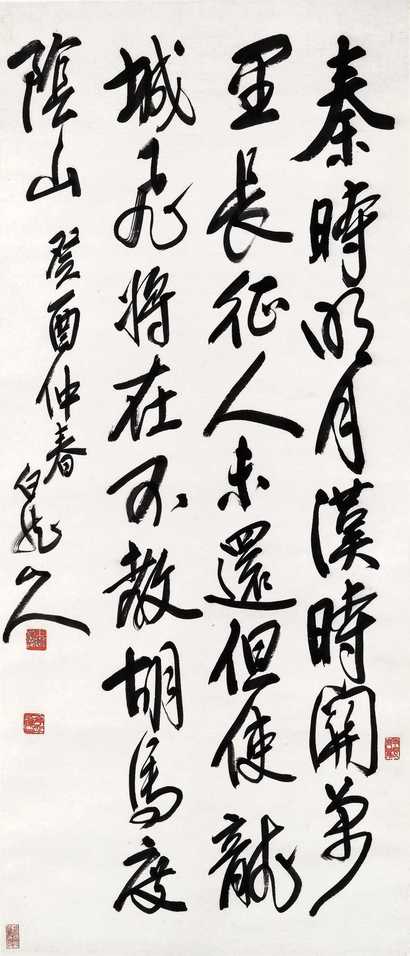 秦時明月漢時關萬
里長征人未還但使龍
城飛將在不教胡馬度
陰山
癸酉仲春白龍山人